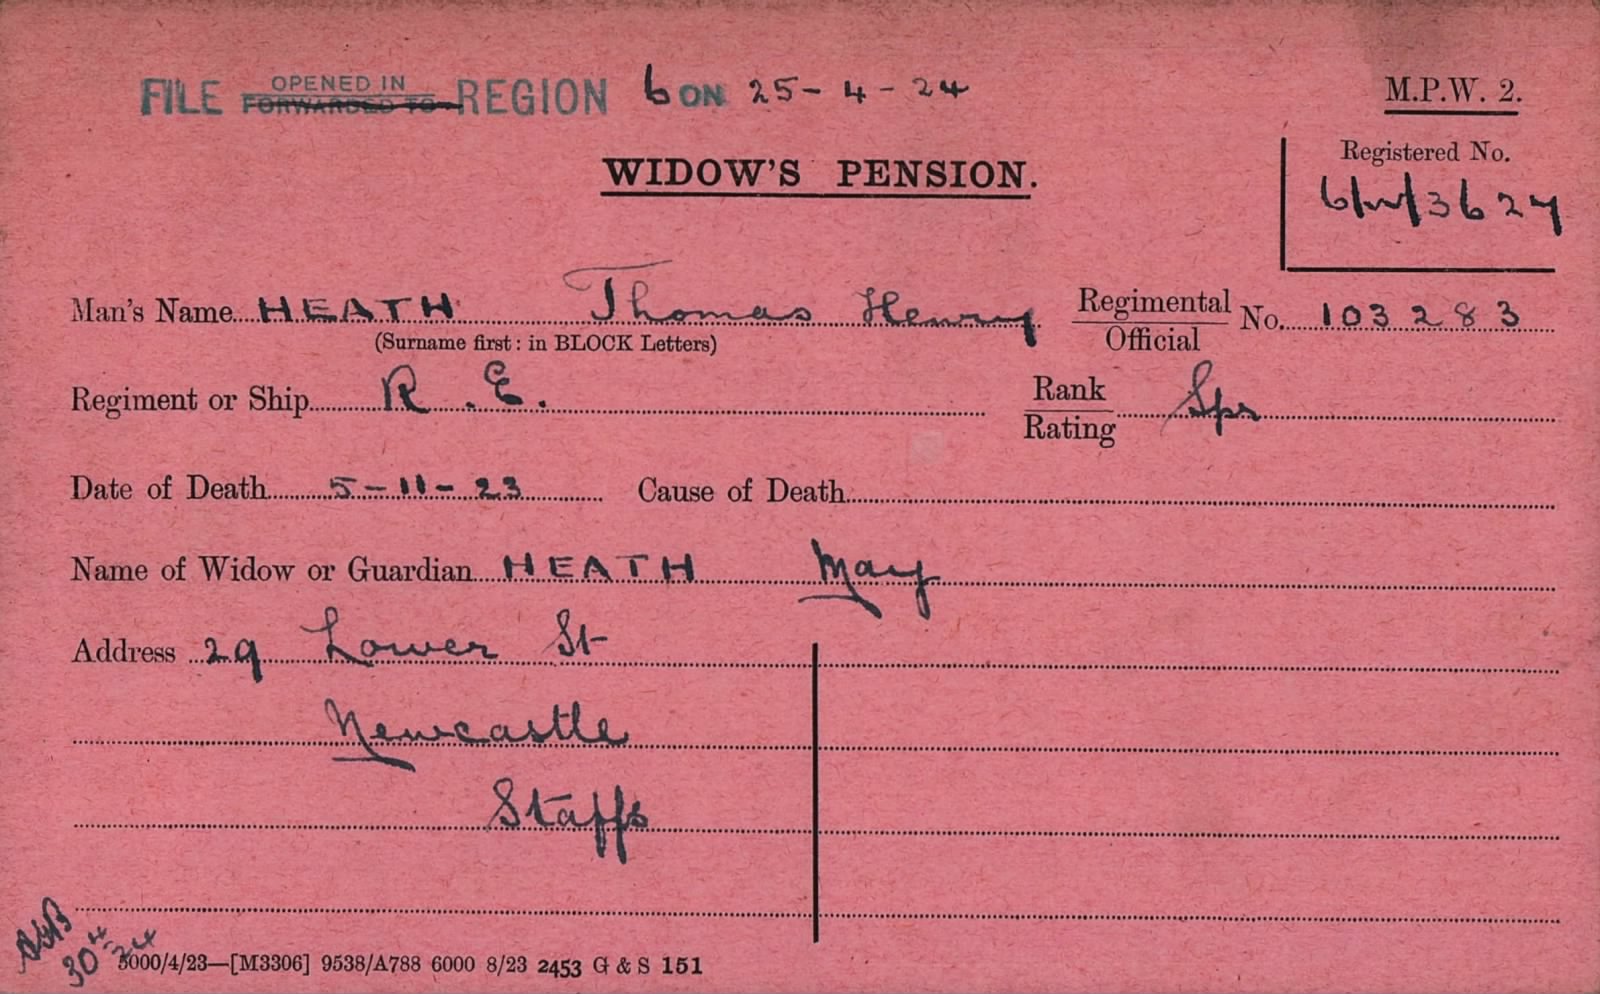 FILE OPENED IN FORWARDED TO REGION 6 ON 25-4-24
M.P.W. 2.
WIDOW'S PENSION.
Registered No.
6/W/3627
Man's Name HEATH Thomas Henry Regimental Official No. 103283
(Surname first: in BLOCK Letters)
Regiment or Ship R.E. Rank Rating Spr
Date of Death 5-11-23 Cause of Death
Name of Widow or Guardian HEATH May
Address 29 Lower St
Newcastle
Staffs
30-4-24
5000/4/23—[M3306] 9538/A788 6000 8/23 2453 G & S 151